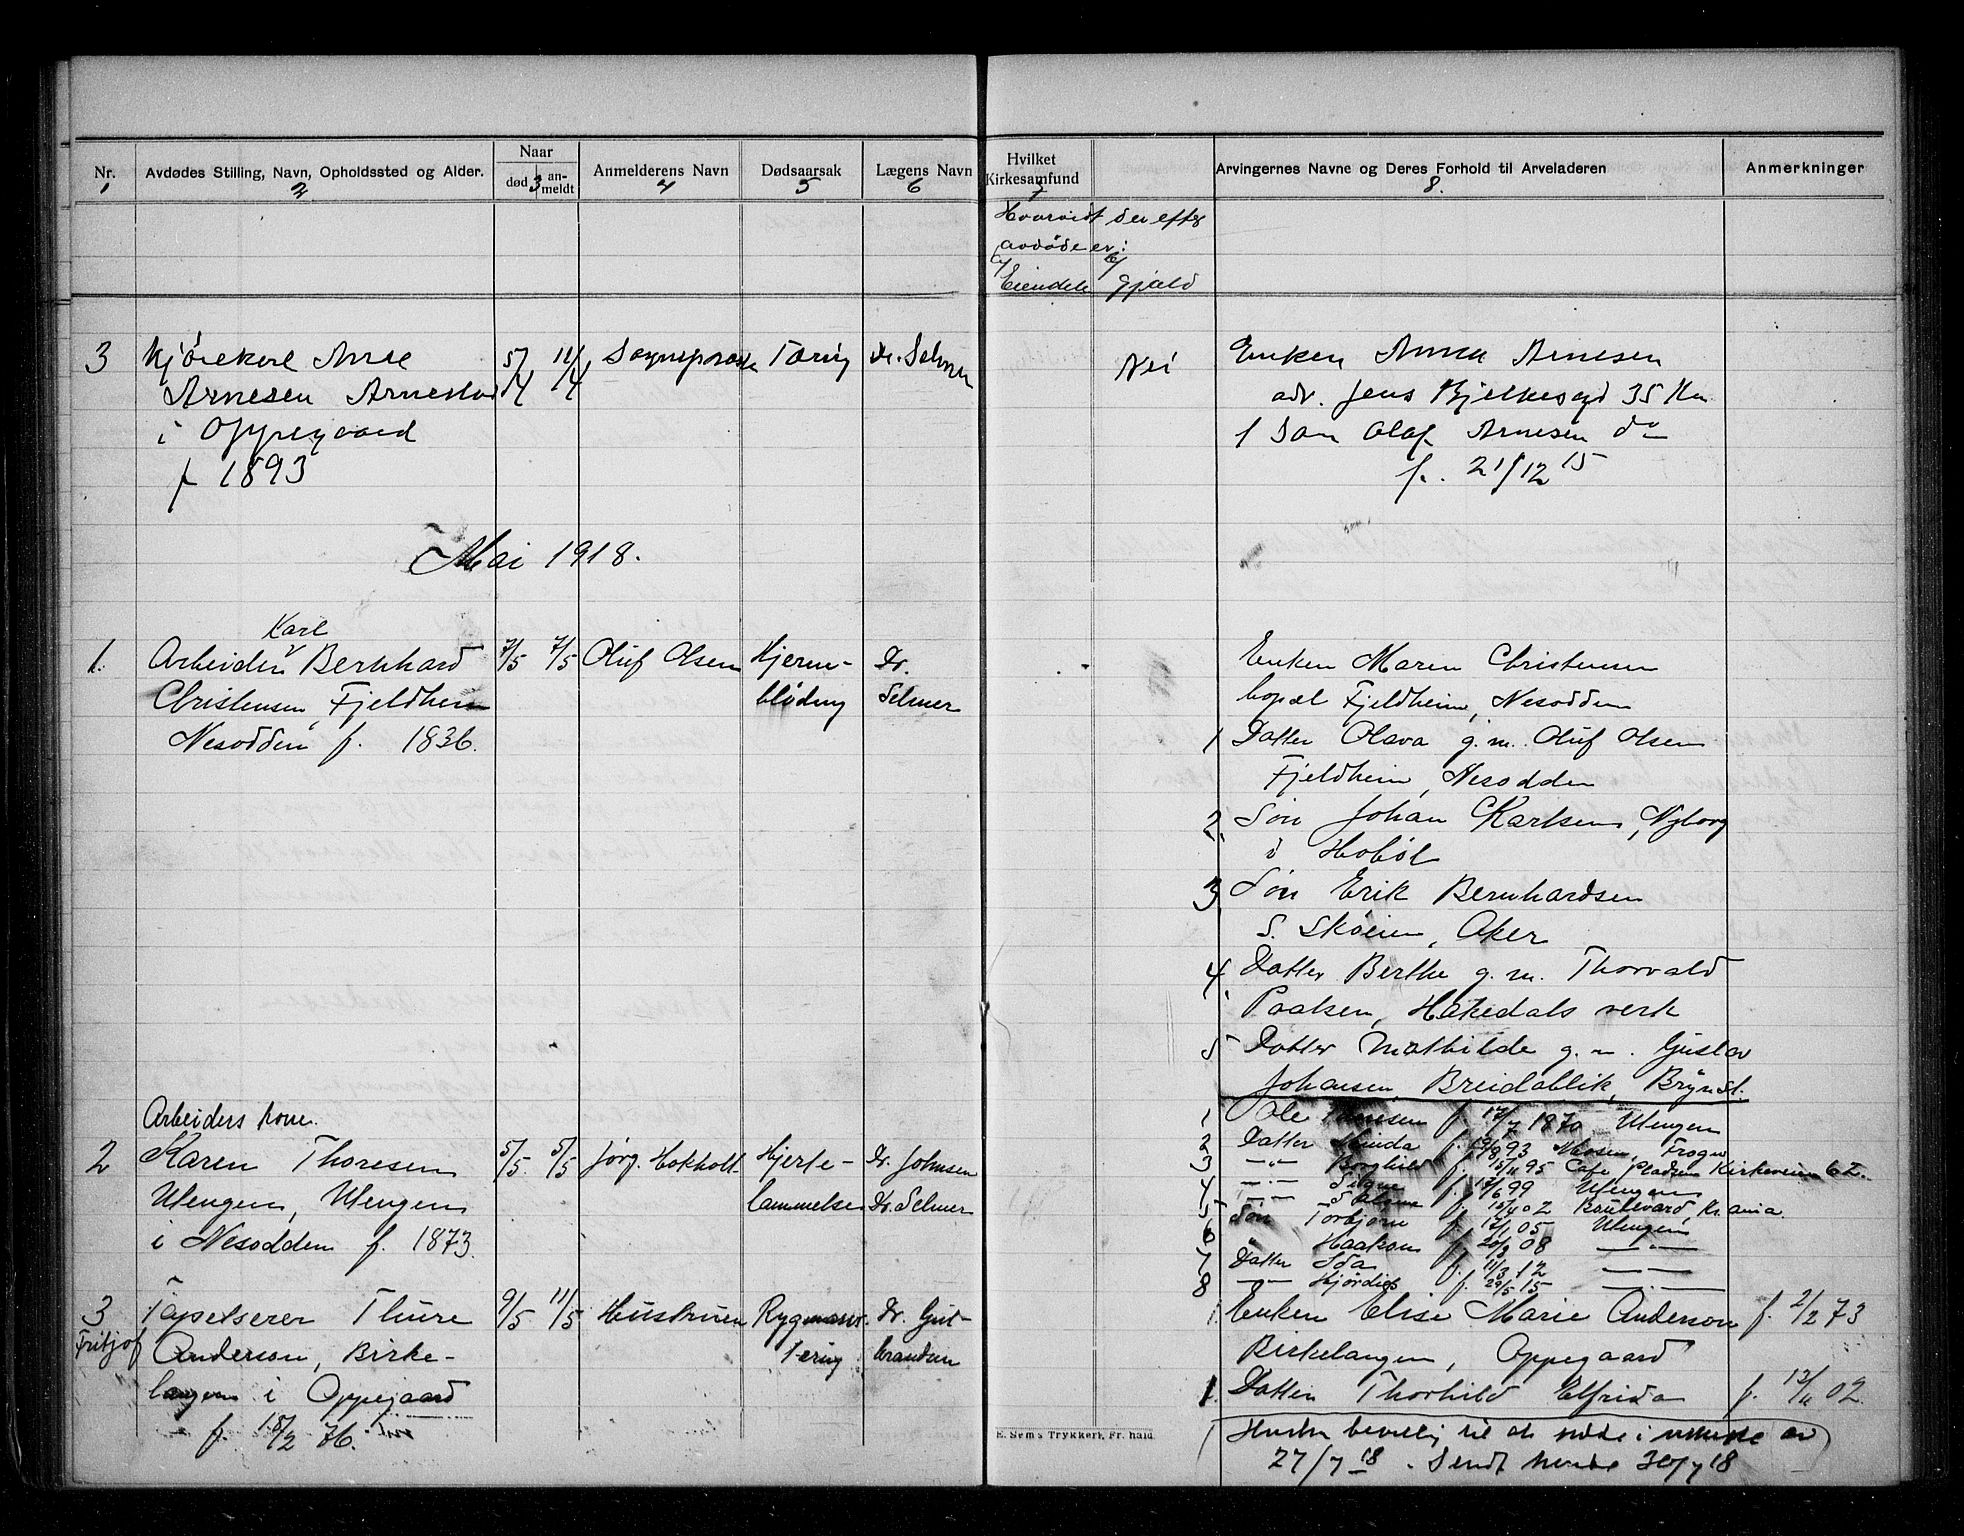 Nr.
1
Avdødes Stilling, Navn, Opholdssted og Alder.
2
Naar
død 3 an-meldt
Anmelderens Navn
4
Dødsaarsak
5
Lægens Navn
6
Hvilket
Kirkesamfund
7
Arvingernes Navne og Deres Forhold til Arveladeren
8.
Anmerkninger
Hvorvidt der efter
avdøde er:
a/ b/
Eiendele gjæld
3 Kjørekarl
Arnesen Arnestad
i Oppegaard
f 1893
5/4 11/4
Tæring
Dr. Selmer
Nei
Enken Anna Arnesen
adr. Jens Bjelkesgd 35 Kra
1 Søn Olaf Arnesen do
f. 21/12 15
Mai 1918.
Karl
1. Arbeider Bernhard
Christensen, Fjeldheim
Nesodden f. 1836.
7/5 7/5
Oluf Olsen
Hjerne-
blødning
Dr.
Selmer
Enken Maren Christensen
bopæl Fjeldheim, Nesodden
1 Datter Olava g.m. Oluf Olsen
Fjeldheim, Nesodden
2 Søn Johan Karlsen, Nyborg
i Hobøl
3 Søn Erik Bernhardsen
S. Skøien, Aker
4 Datter Berthe g.m. Thorvald
Paalsen, Hakedals verk
5 Datter Mathilde g.m. Gustav
Johansen, Breidablik, Brynst.
Arbeiders kone.
2 Karen Thoresen
Ulengen, Ulengen
i Nesodden f. 1873.
5/5 5/5
Jørg. Hokholt
Hjerte-
lammelse
Dr. Johnsen
Dr. Selmer
1 Ole f. 17/7 1870 Ulengen
2 Datter f. 19/8 93 Mosen, Frogn
3 -"- Borghild f. 15/11 95 Cafe Kirkeveien 62.
4 -"- Signe f. 17/6 99 Ulengen
5 -"- f. 02 Boulevard, Kr.ania.
6 Søn Torbjørn f. 17/1 05 Ulengen
7 Haakon f. 20/3 08 -"-
Datter Ida f. 11/3 12 -"-
8 -"- Hjørdis f. 29/5 15 -"-
3 Tapetserer Thure
Fritjof Anderson, Birke-
langen i Oppegaard
f. 18/2 76.
9/5 11/5
Hustruen
Rygmarvs-
tæring
Dr. Gut-
brandsen
1. Enken Elise Marie Anderson f. 2/2 73
Birkelangen, Oppegaard
1. Datter Thorhild Elfrida f. 13/11 02
E. Sem's Trykkeri, Fr. hald.
bevillig til at sidde i uskifte av
27/7 18. Sendt hende 30/7 18